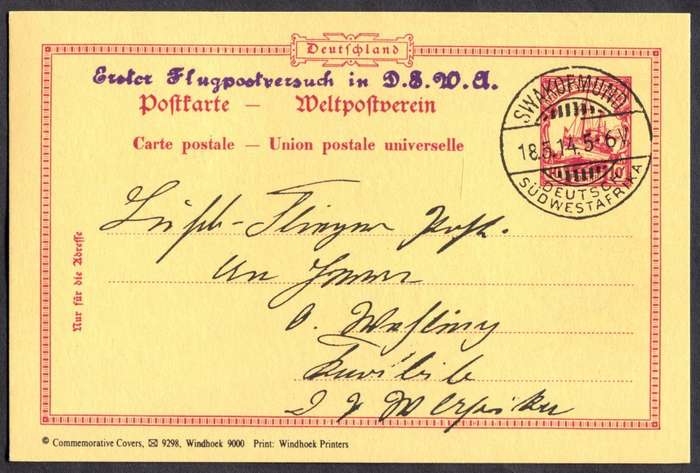 Deutschland
Erster Flugpostversuch in D.S.W.A.
Postkarte — Weltpostverein
Carte postale — Union postale universelle
SWAKOPMUND
18.5.14. 5-6V.
DEUTSCH
SÜDWESTAFRIKA
10
Nur für die Adresse
Flieger Post.
An
Karibib
© Commemorative Covers, ✉ 9298, Windhoek 9000 Print: Windhoek Printers